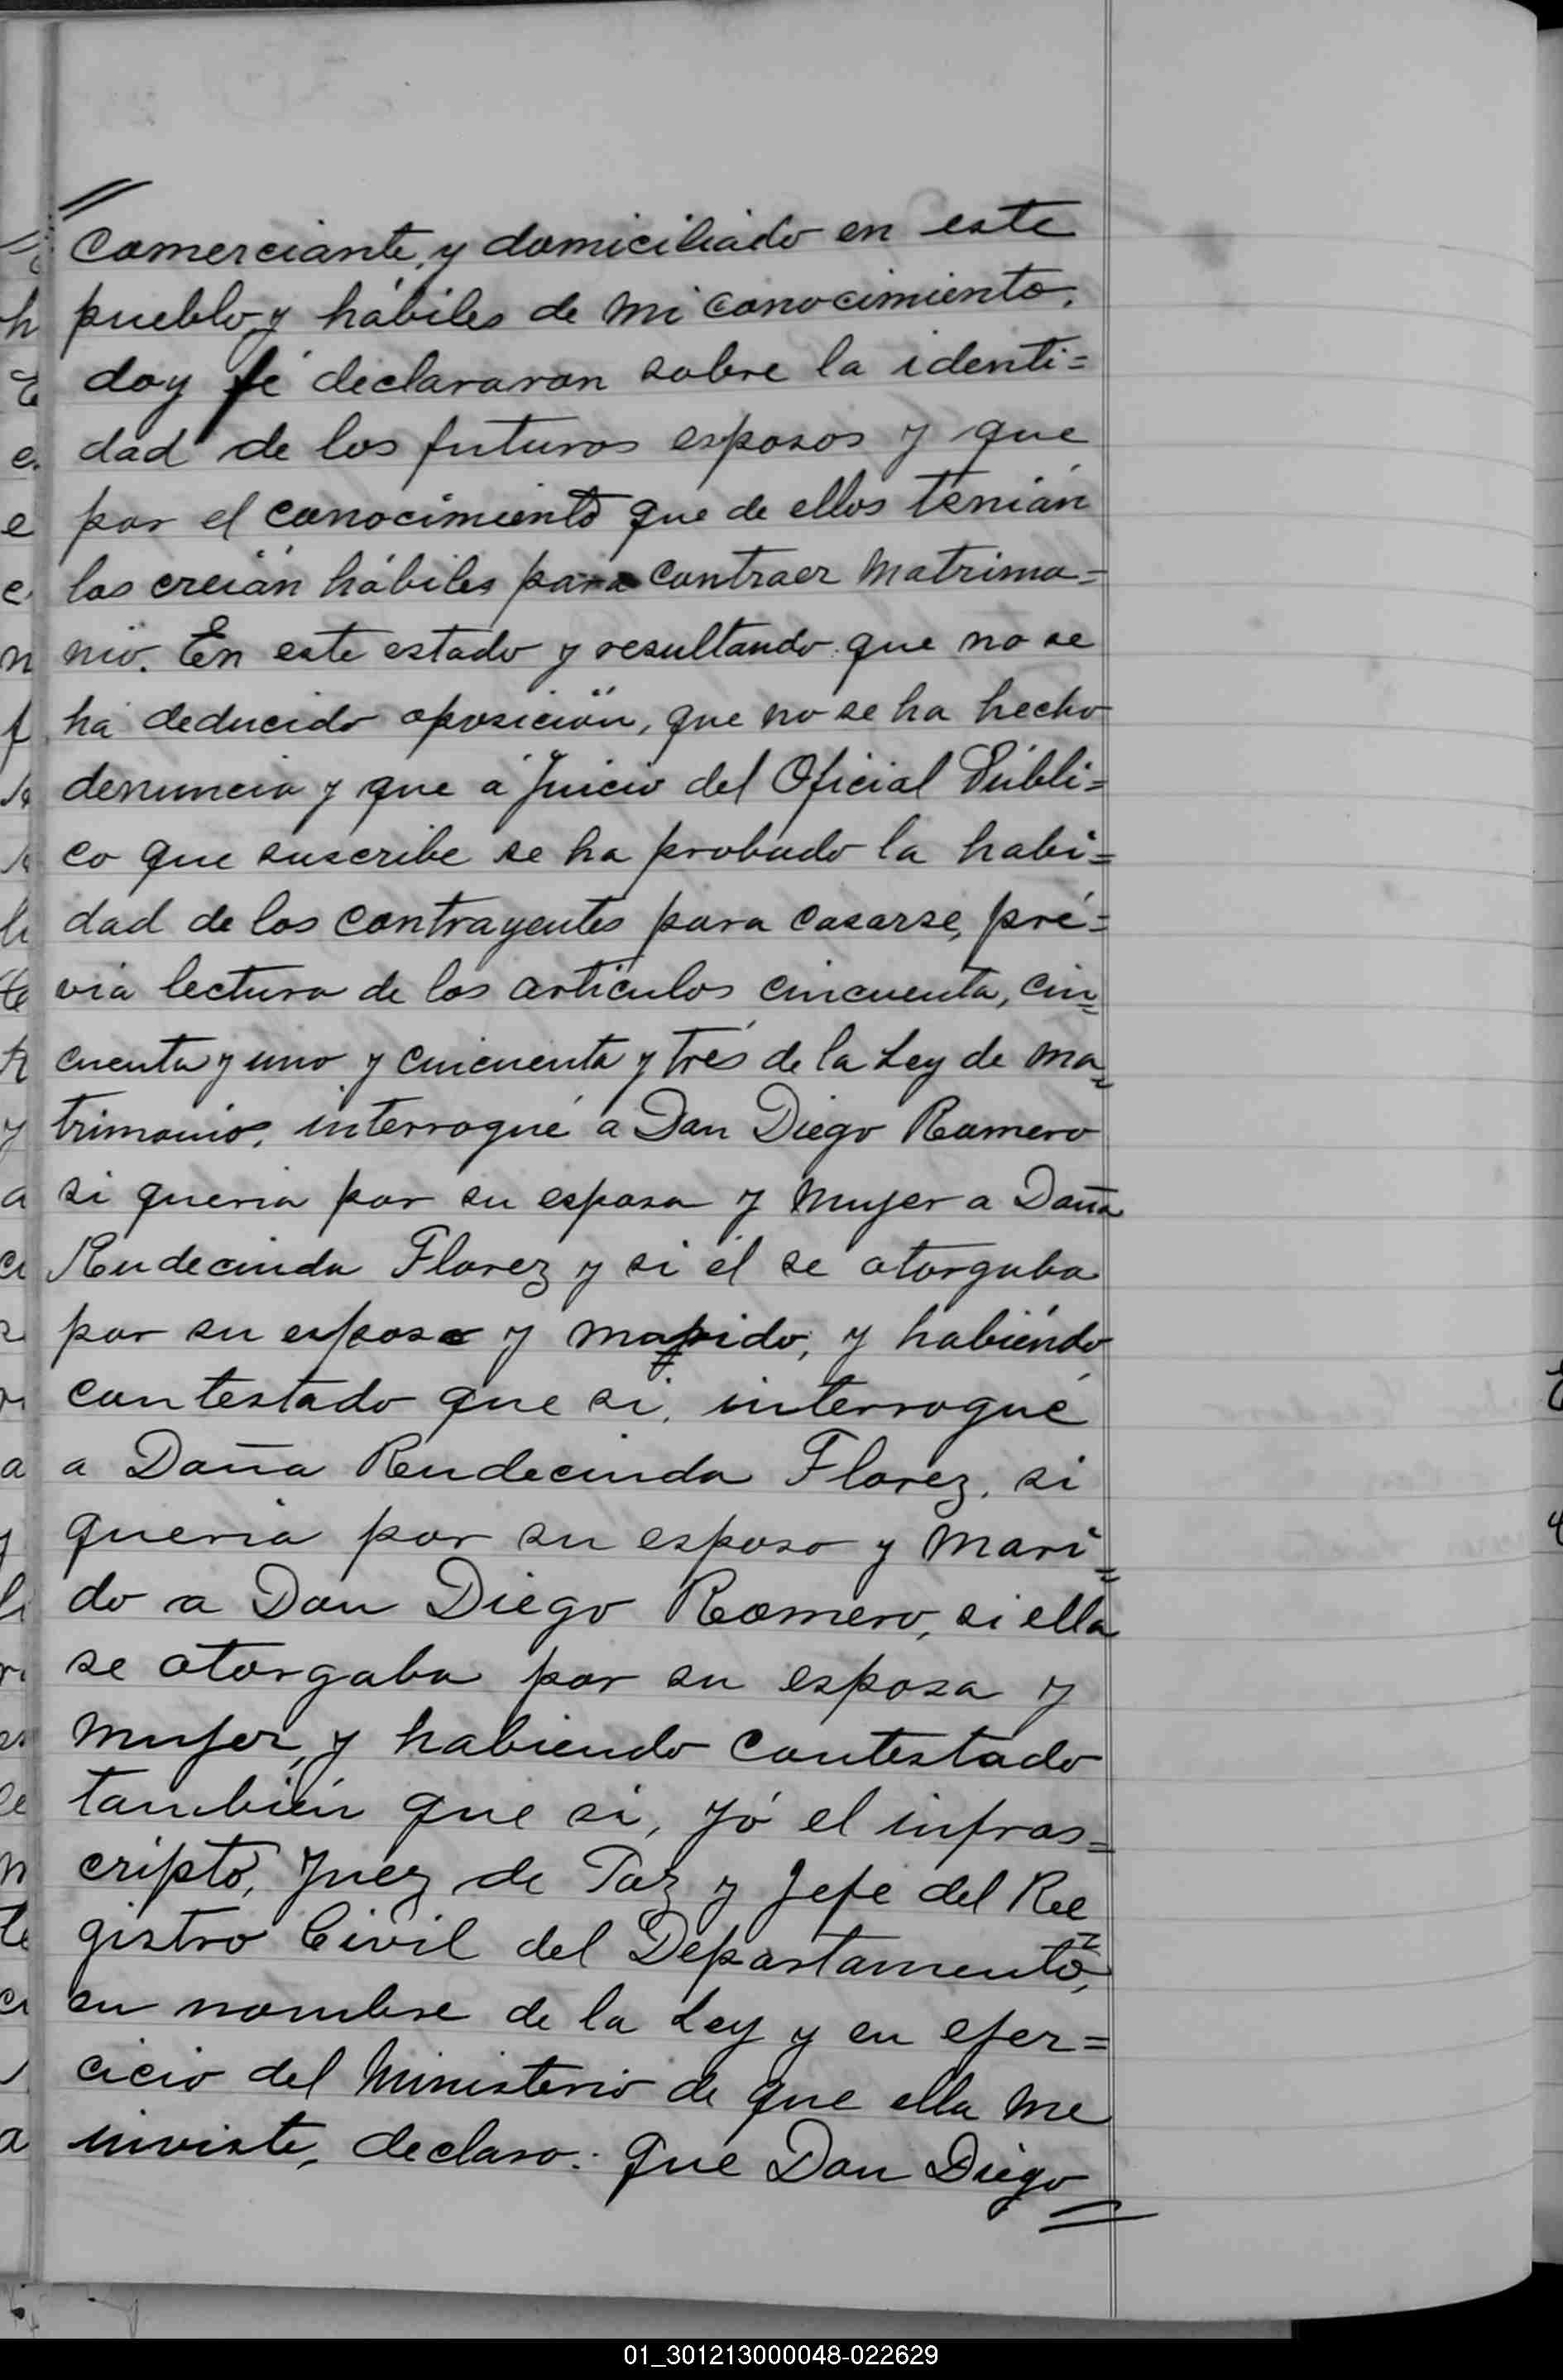 Comerciante, y domiciliado en este
pueblo y hábiles de mi conocimiento,
doy fé declararon sobre la identi=
dad de los futuros esposos y que
por el conocimiento que de ellos tenián
los creián hábiles para contraer matrimo=
nio. En este estado y resultando que no se
ha deducido oposición, que no se ha hecho
denuncia y que á Juicio del Oficial Públi=
co que suscribe se ha probado la habi=
dad de los contrayentes para casarse, pré=
via lectura de los artículos cincuenta, cin=
cuenta y uno y cincuenta y trés de la Ley de Ma=
trimonio, interrogué a Don Diego Romero
si queria por su esposa y mujer a Doña
Rudecinda Florez y si él se otorgaba
por su esposo y marido, y habiéndo
contestado que si, interrogué
a Doña Rudecinda Florez, si
queria por su esposo y mari=
do a Don Diego Romero, si ella
se otorgaba por su esposa y
mujer, y habiendo contestado
también que si, yó el infras=
cripto, Juez de Paz y Jefe del Re=
gistro Civil del Departamento,
en nombre de la Ley y en ejer=
cicio del Ministerio de que ella me
inviste, declaro: que Don Diego
01_301213000048-022629